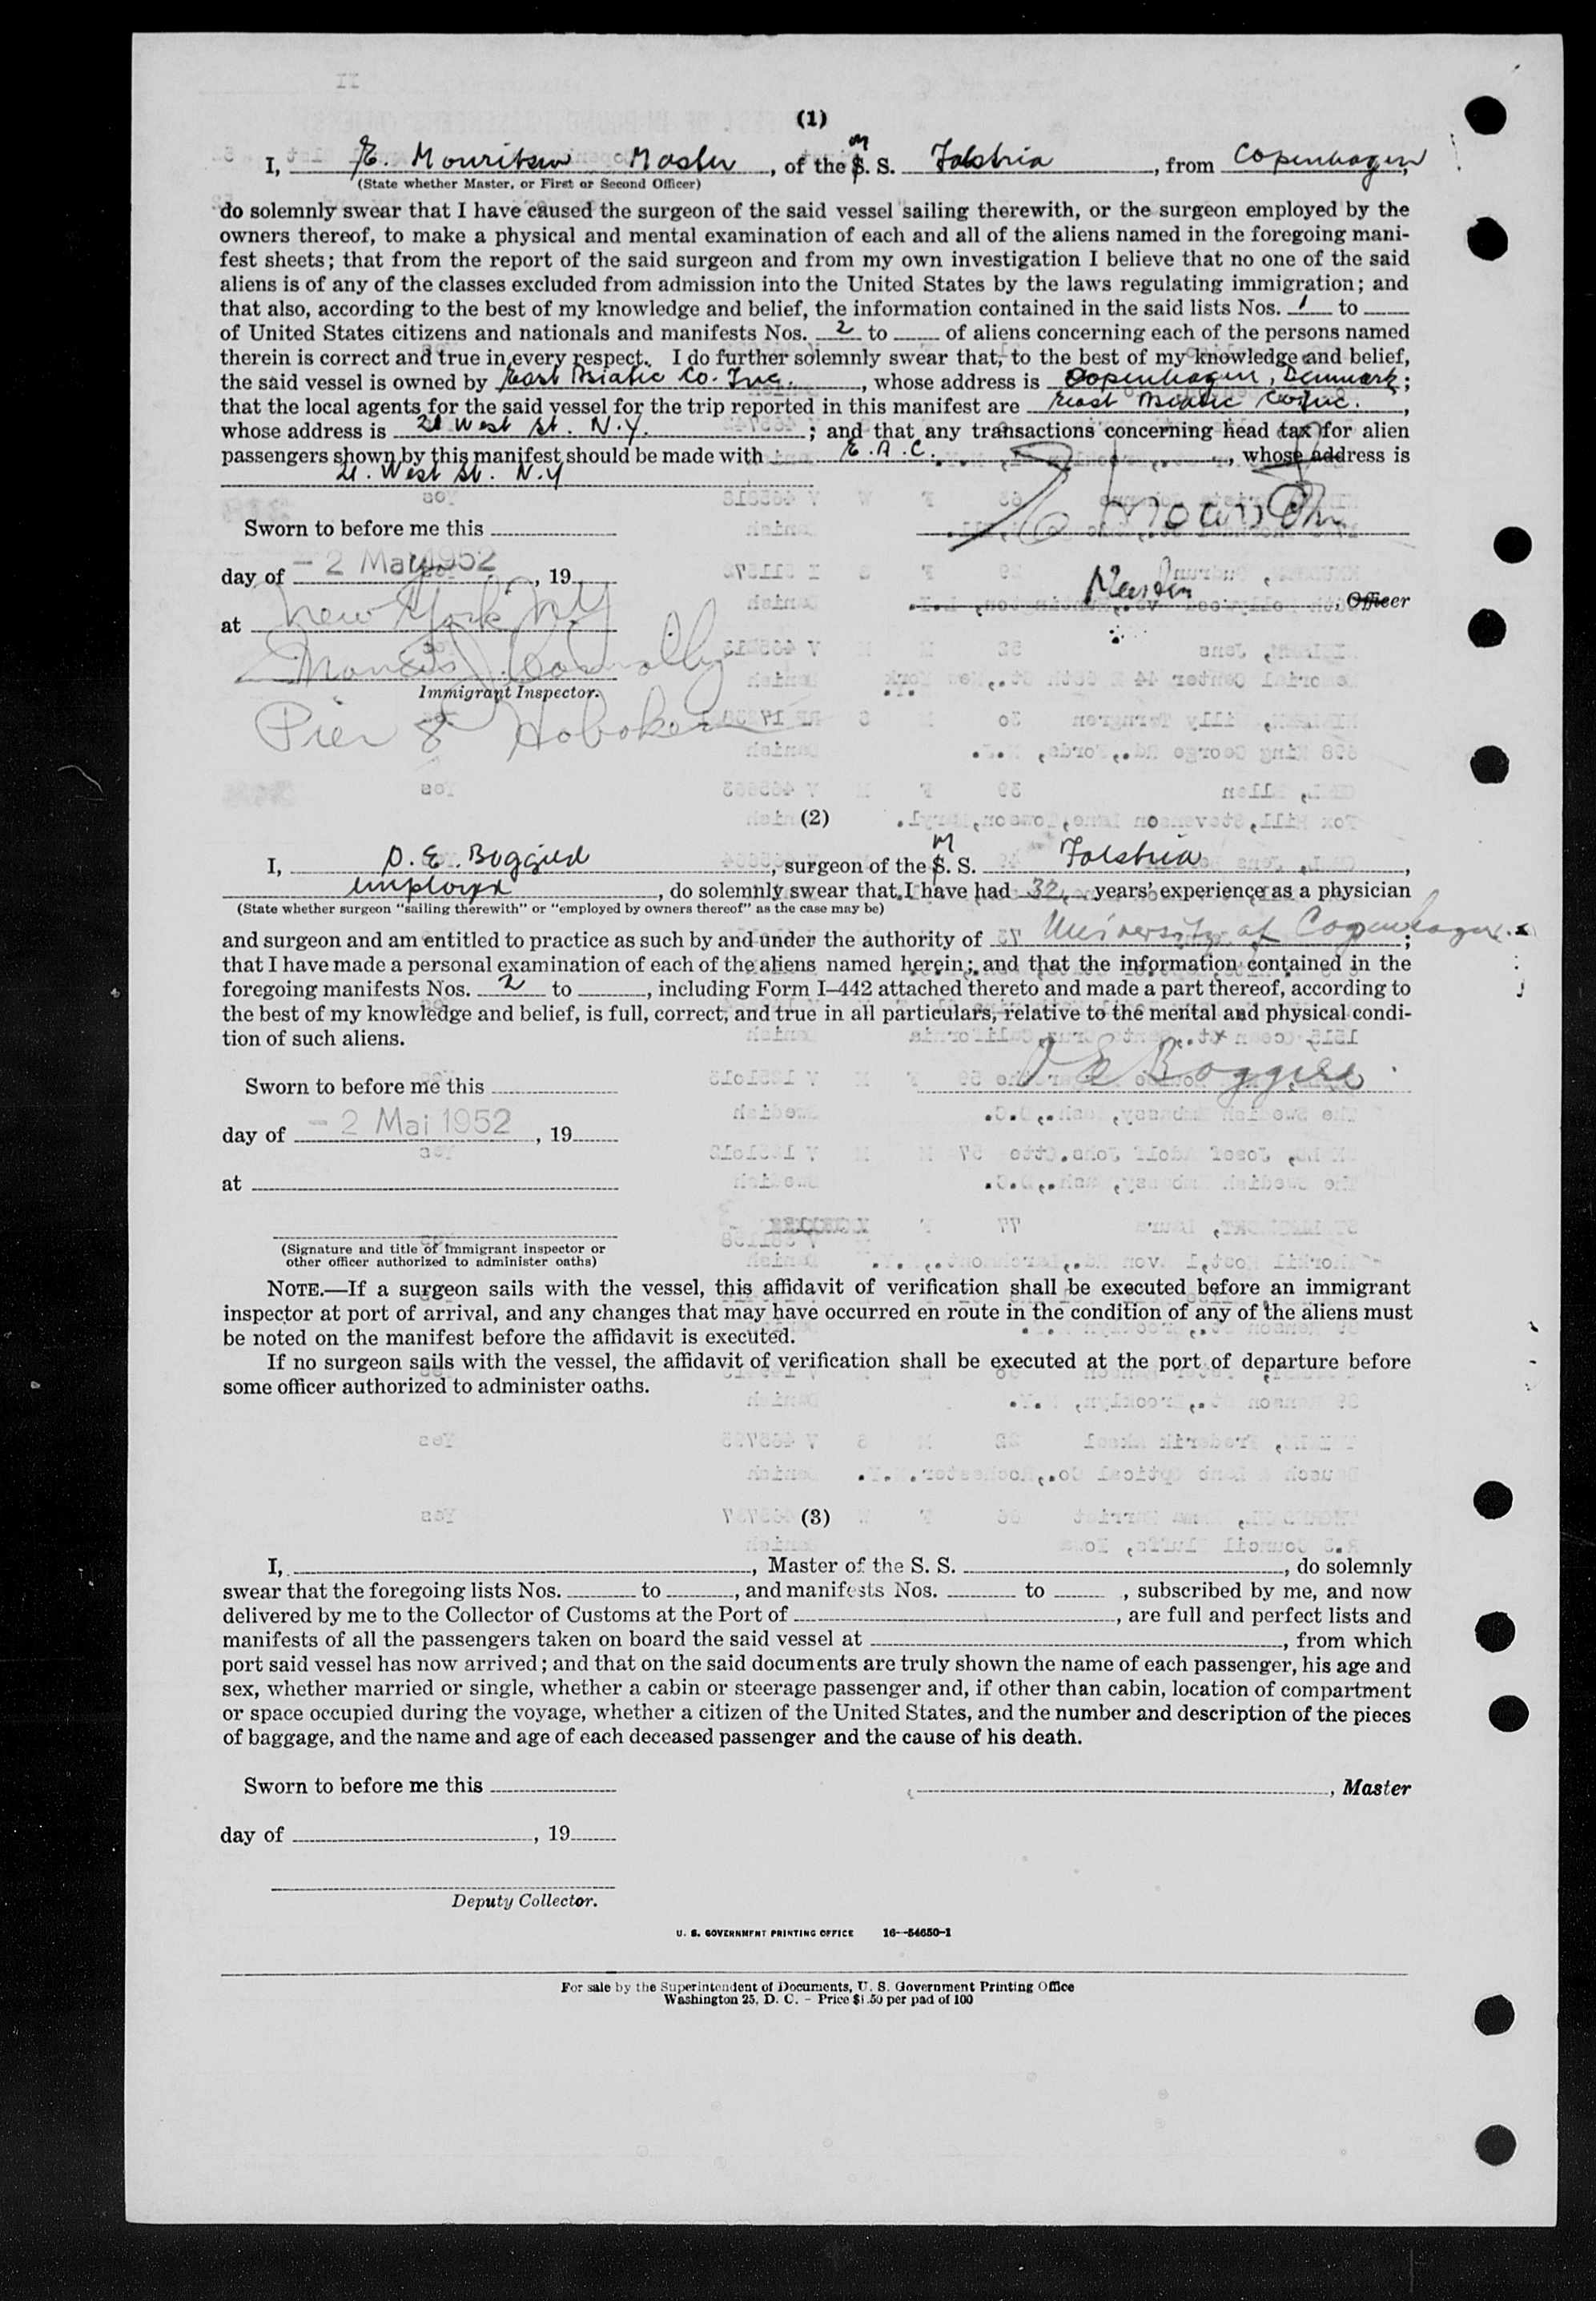 (1)
I, E. Mouritsen Master, of the M. S. Falstria, from Copenhagen,
(State whether Master, or First or Second Officer)
do solemnly swear that I have caused the surgeon of the said vessel sailing therewith, or the surgeon employed by the
owners thereof, to make a physical and mental examination of each and all of the aliens named in the foregoing mani-
fest sheets; that from the report of the said surgeon and from my own investigation I believe that no one of the said
aliens is of any of the classes excluded from admission into the United States by the laws regulating immigration; and
that also, according to the best of my knowledge and belief, the information contained in the said lists Nos. 1 to
of United States citizens and nationals and manifests Nos. 2 to of aliens concerning each of the persons named
therein is correct and true in every respect. I do further solemnly swear that, to the best of my knowledge and belief,
the said vessel is owned by East Asiatic Co. Inc., whose address is Copenhagen, Denmark;
that the local agents for the said vessel for the trip reported in this manifest are East Asiatic Co Inc.,
whose address is 21 West St. N.Y.; and that any transactions concerning head tax for alien
passengers shown by this manifest should be made with E. A. C., whose address is
21. West St. N.Y
Sworn to before me this
day of - 2 Mai 1952, 19
Master, Officer
at New York N.Y
Immigrant Inspector.
Pier 8 Hoboken
(2)
I, O. E. Bøggild, surgeon of the M. S. Falstria,
employed, do solemnly swear that I have had 32 years' experience as a physician
(State whether surgeon "sailing therewith" or "employed by owners thereof" as the case may be)
and surgeon and am entitled to practice as such by and under the authority of University of Copenhagen;
that I have made a personal examination of each of the aliens named herein; and that the information contained in the
foregoing manifests Nos. 2 to , including Form I-442 attached thereto and made a part thereof, according to
the best of my knowledge and belief, is full, correct, and true in all particulars, relative to the mental and physical condi-
tion of such aliens.
O E Bøggild
Sworn to before me this
day of - 2 Mai 1952, 19
at
(Signature and title of immigrant inspector or
other officer authorized to administer oaths)
NOTE.—If a surgeon sails with the vessel, this affidavit of verification shall be executed before an immigrant
inspector at port of arrival, and any changes that may have occurred en route in the condition of any of the aliens must
be noted on the manifest before the affidavit is executed.
If no surgeon sails with the vessel, the affidavit of verification shall be executed at the port of departure before
some officer authorized to administer oaths.
(3)
I, , Master of the S. S. , do solemnly
swear that the foregoing lists Nos. to , and manifests Nos. to , subscribed by me, and now
delivered by me to the Collector of Customs at the Port of , are full and perfect lists and
manifests of all the passengers taken on board the said vessel at , from which
port said vessel has now arrived; and that on the said documents are truly shown the name of each passenger, his age and
sex, whether married or single, whether a cabin or steerage passenger and, if other than cabin, location of compartment
or space occupied during the voyage, whether a citizen of the United States, and the number and description of the pieces
of baggage, and the name and age of each deceased passenger and the cause of his death.
Sworn to before me this
, Master
day of , 19
Deputy Collector.
U. S. GOVERNMENT PRINTING OFFICE 16—54650-1
For sale by the Superintendent of Documents, U. S. Government Printing Office
Washington 25, D. C. - Price $1.50 per pad of 100